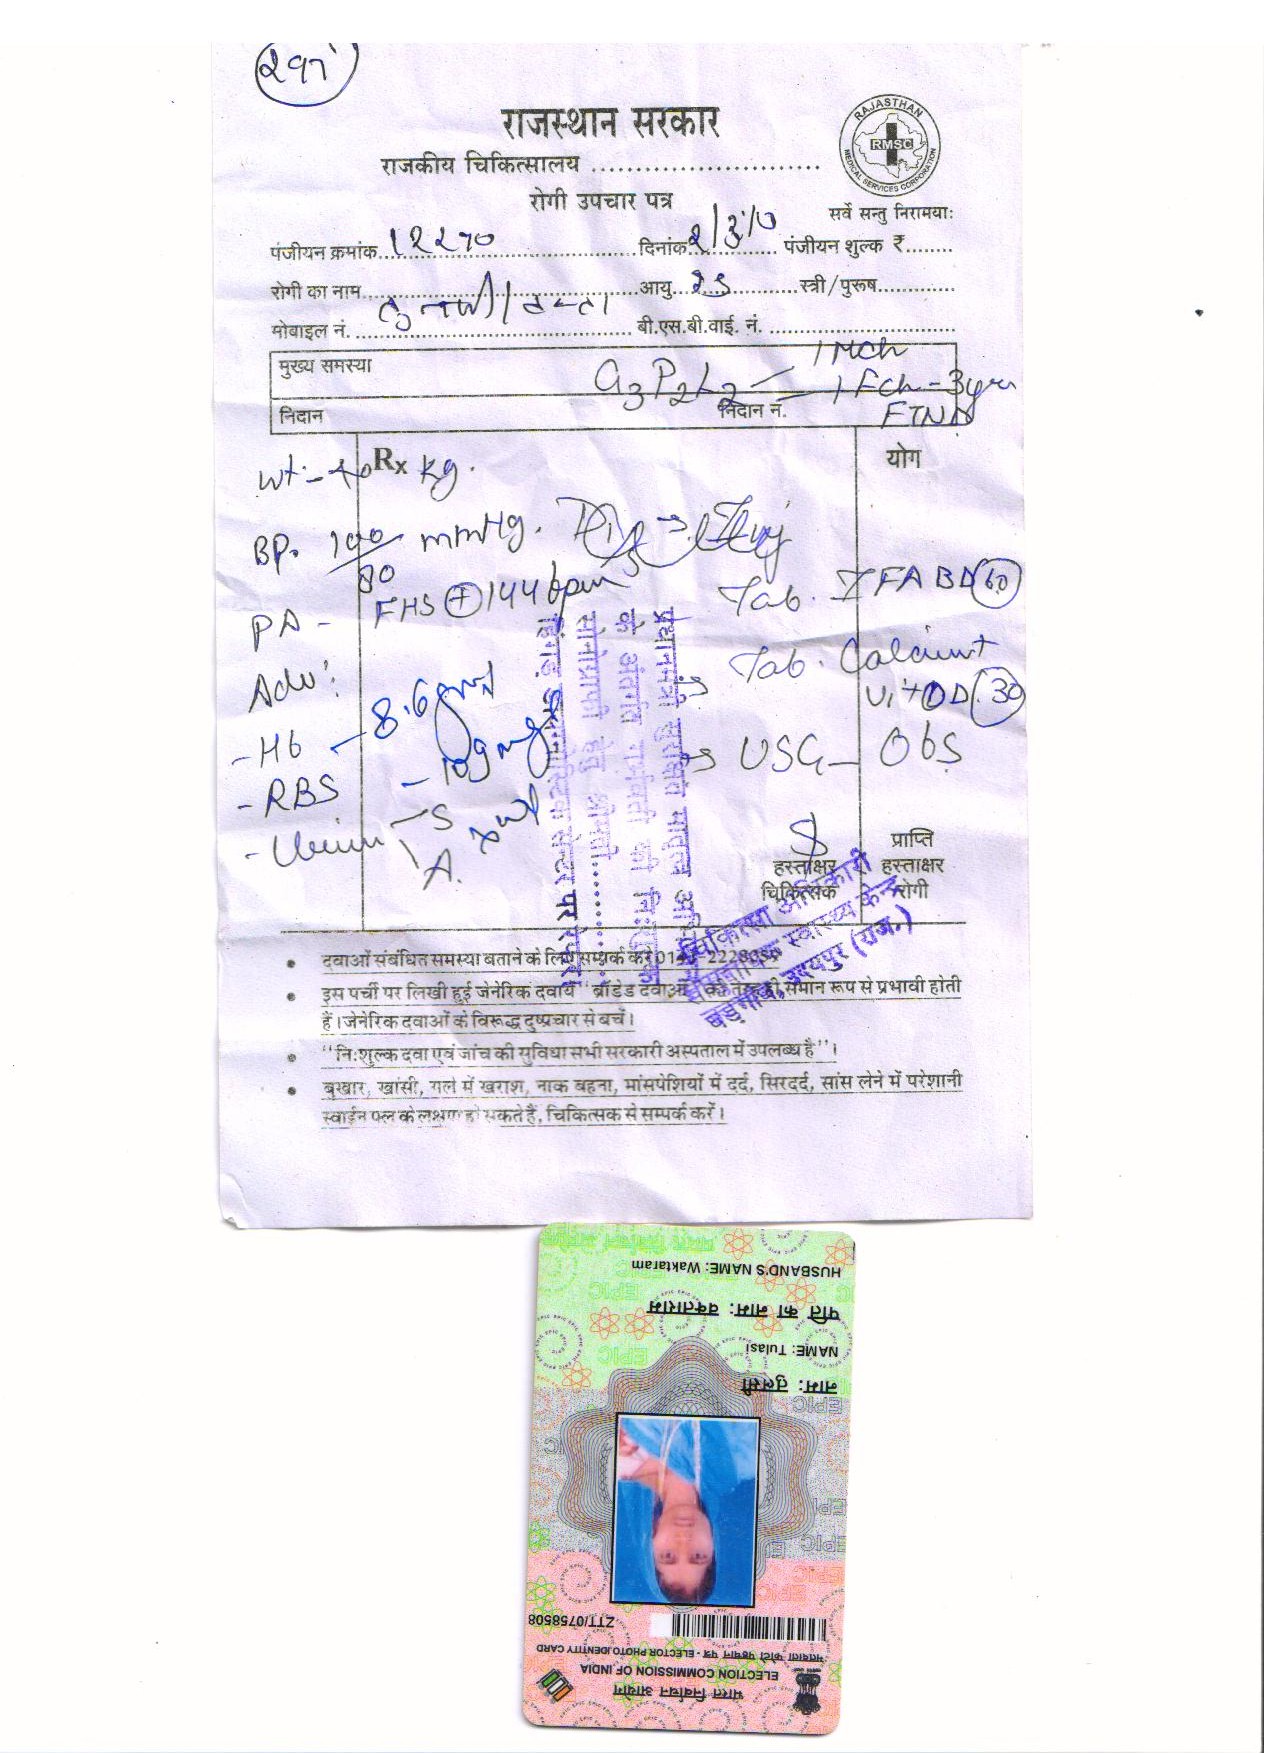 297
राजस्थान सरकार
राजकीय चिकित्सालय ..........................
रोगी उपचार पत्र
RAJASTHAN
RMSC
MEDICAL SERVICES CORPORATION
सर्वे सन्तु निरामया:
पंजीयन क्रमांक... 12270 ... दिनांक 2/3/ ... पंजीयन शुल्क ₹........
रोगी का नाम........ आयु... 25 ... स्त्री/पुरूष.............
मोबाइल नं. ........ बी.एस.बी.वाई. नं. ............................
मुख्य समस्या G3P2L2 - 1 Mch
1 Fch - 3 year
निदान निदान नं. FTND
Rx योग
wt:- 40 kg.
BP. 100/80 mmHg.
PA - FHS + 144 bpm
Tab. IFA BD (60)
Adv:
Tab. Calcium +
Vit D OD (30)
- Hb - 8.6 gm
- RBS - 109 mg
USG - Obs
- Urine - S
A.
प्रधानमंत्री सुरक्षित मातृत्व
के अंतर्गत गर्भवती की नि:शुल्क
सोनोग्राफी हेतु श्रीमती..........
सेन्टर पर
हस्ताक्षर
चिकित्सक
प्राप्ति
हस्ताक्षर
रोगी
चिकित्सा अधिकारी
स्वास्थ्य केन्द्र
बड़गांव, उदयपुर (राज.)
• दवाओं संबंधित समस्या बताने के लिए सम्पर्क करें
• इस पर्ची पर लिखी हुई जेनेरिक दवायें "ब्रांडेड दवाओं" की तरह ही समान रूप से प्रभावी होती
हैं। जेनेरिक दवाओं के विरूद्ध दुष्प्रचार से बचें।
• "नि:शुल्क दवा एवं जांच की सुविधा सभी सरकारी अस्पताल में उपलब्ध है"।
• बुखार, खांसी, गले में खराश, नाक बहना, मांसपेशियों में दर्द, सिरदर्द, सांस लेने में परेशानी
स्वाईन फ्लू के लक्षण हो सकते हैं, चिकित्सक से सम्पर्क करें।
भारत निर्वाचन आयोग
ELECTION COMMISSION OF INDIA
मतदाता फोटो पहचान पत्र - ELECTOR PHOTO IDENTITY CARD
ZTT/0758508
नाम: तुलसी
NAME: Tulasi
पति का नाम: वक्ताराम
HUSBAND'S NAME: Waktaram